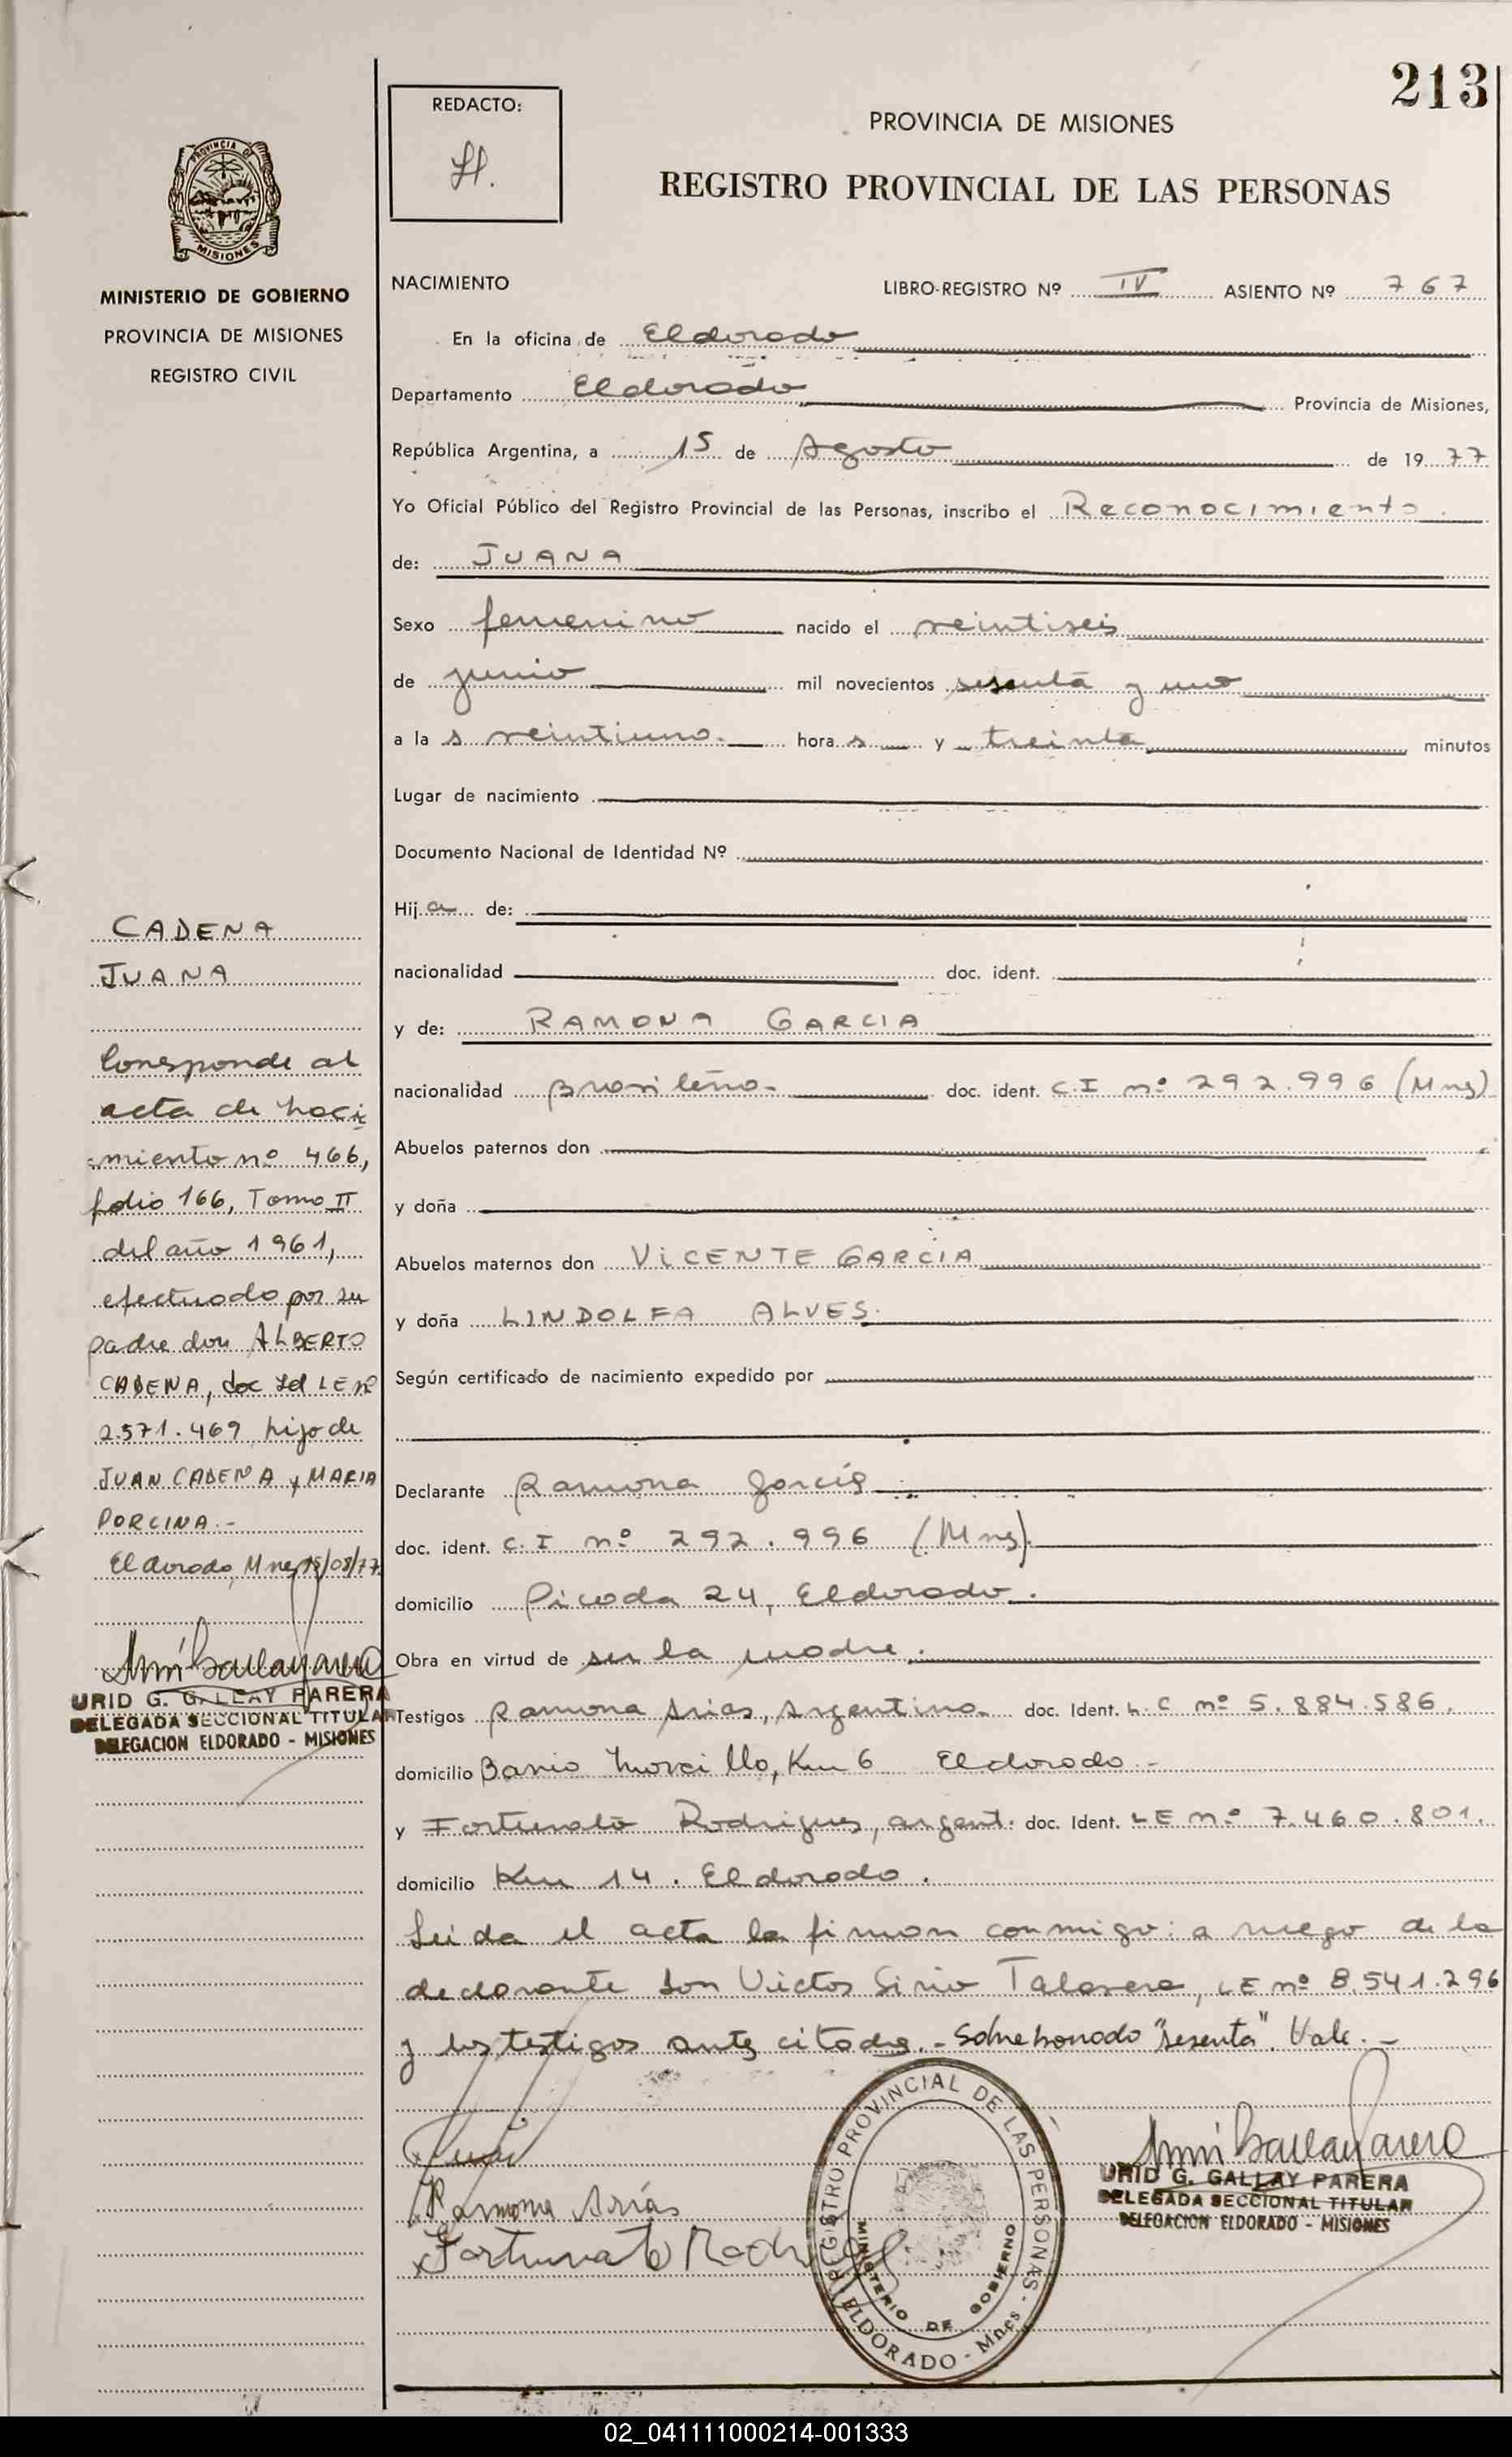 213
REDACTO:
PROVINCIA DE MISIONES
REGISTRO PROVINCIAL DE LAS PERSONAS
PROVINCIA DE
MISIONES
MINISTERIO DE GOBIERNO
PROVINCIA DE MISIONES
REGISTRO CIVIL
NACIMIENTO LIBRO-REGISTRO Nº IV ASIENTO Nº 767
En la oficina de Eldorado
Departamento Eldorado Provincia de Misiones,
República Argentina, a 15 de Agosto de 1977
Yo Oficial Público del Registro Provincial de las Personas, inscribo el Reconocimiento.
de: JUANA
Sexo femenino nacido el veintiseis
de junio mil novecientos sesenta y uno
a las veintiuno. horas y treinta minutos
Lugar de nacimiento
Documento Nacional de Identidad Nº
Hija de:
nacionalidad doc. ident.
y de: RAMONA GARCIA
nacionalidad Brasileña. doc. ident. C.I nº 292.996 (Mns)
Abuelos paternos don
y doña
Abuelos maternos don VICENTE GARCIA
y doña LINDOLFA ALVES.
Según certificado de nacimiento expedido por
Declarante Ramona García
doc. ident. C.I nº 292.996 (Mns)
domicilio Picada 24, Eldorado.
Obra en virtud de ser la madre.
Testigos Ramona Arias, Argentina. doc. Ident. L.C nº 5.884.586.
domicilio Barrio Km 6 Eldorado.-
y Fortunato Rodrigues, argent. doc. Ident. LE nº 7.460.801.
domicilio Km 14. Eldorado.
Leida el acta la firman conmigo: a ruego de la
declarante don Victor Sirio Talavera, LE nº 8.541.296
y los testigos antes citados.- Sobreborrado "sesenta". Vale.-
CADENA
JUANA
Corresponde al
acta de naci
miento nº 466,
folio 166, Tomo II
del año 1961,
efectuado por su
padre don ALBERTO
CADENA, doc Id LE nº
2.571.469 hijo de
JUAN CADENA y MARIA
PORCINA.-
Eldorado, Mnes 15/08/77
URID G. GALLAY PARERA
DELEGADA SECCIONAL TITULAR
DELEGACION ELDORADO - MISIONES
Ramona Arias
Fortunato Rodrigues
REGISTRO PROVINCIAL DE LAS PERSONAS - ELDORADO - Mnes -
MINISTERIO DE GOBIERNO
URID G. GALLAY PARERA
DELEGADA SECCIONAL TITULAR
DELEGACION ELDORADO - MISIONES
02_041111000214-001333